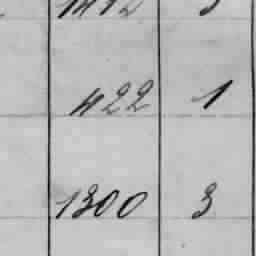 1412 3
422 1
1300 3